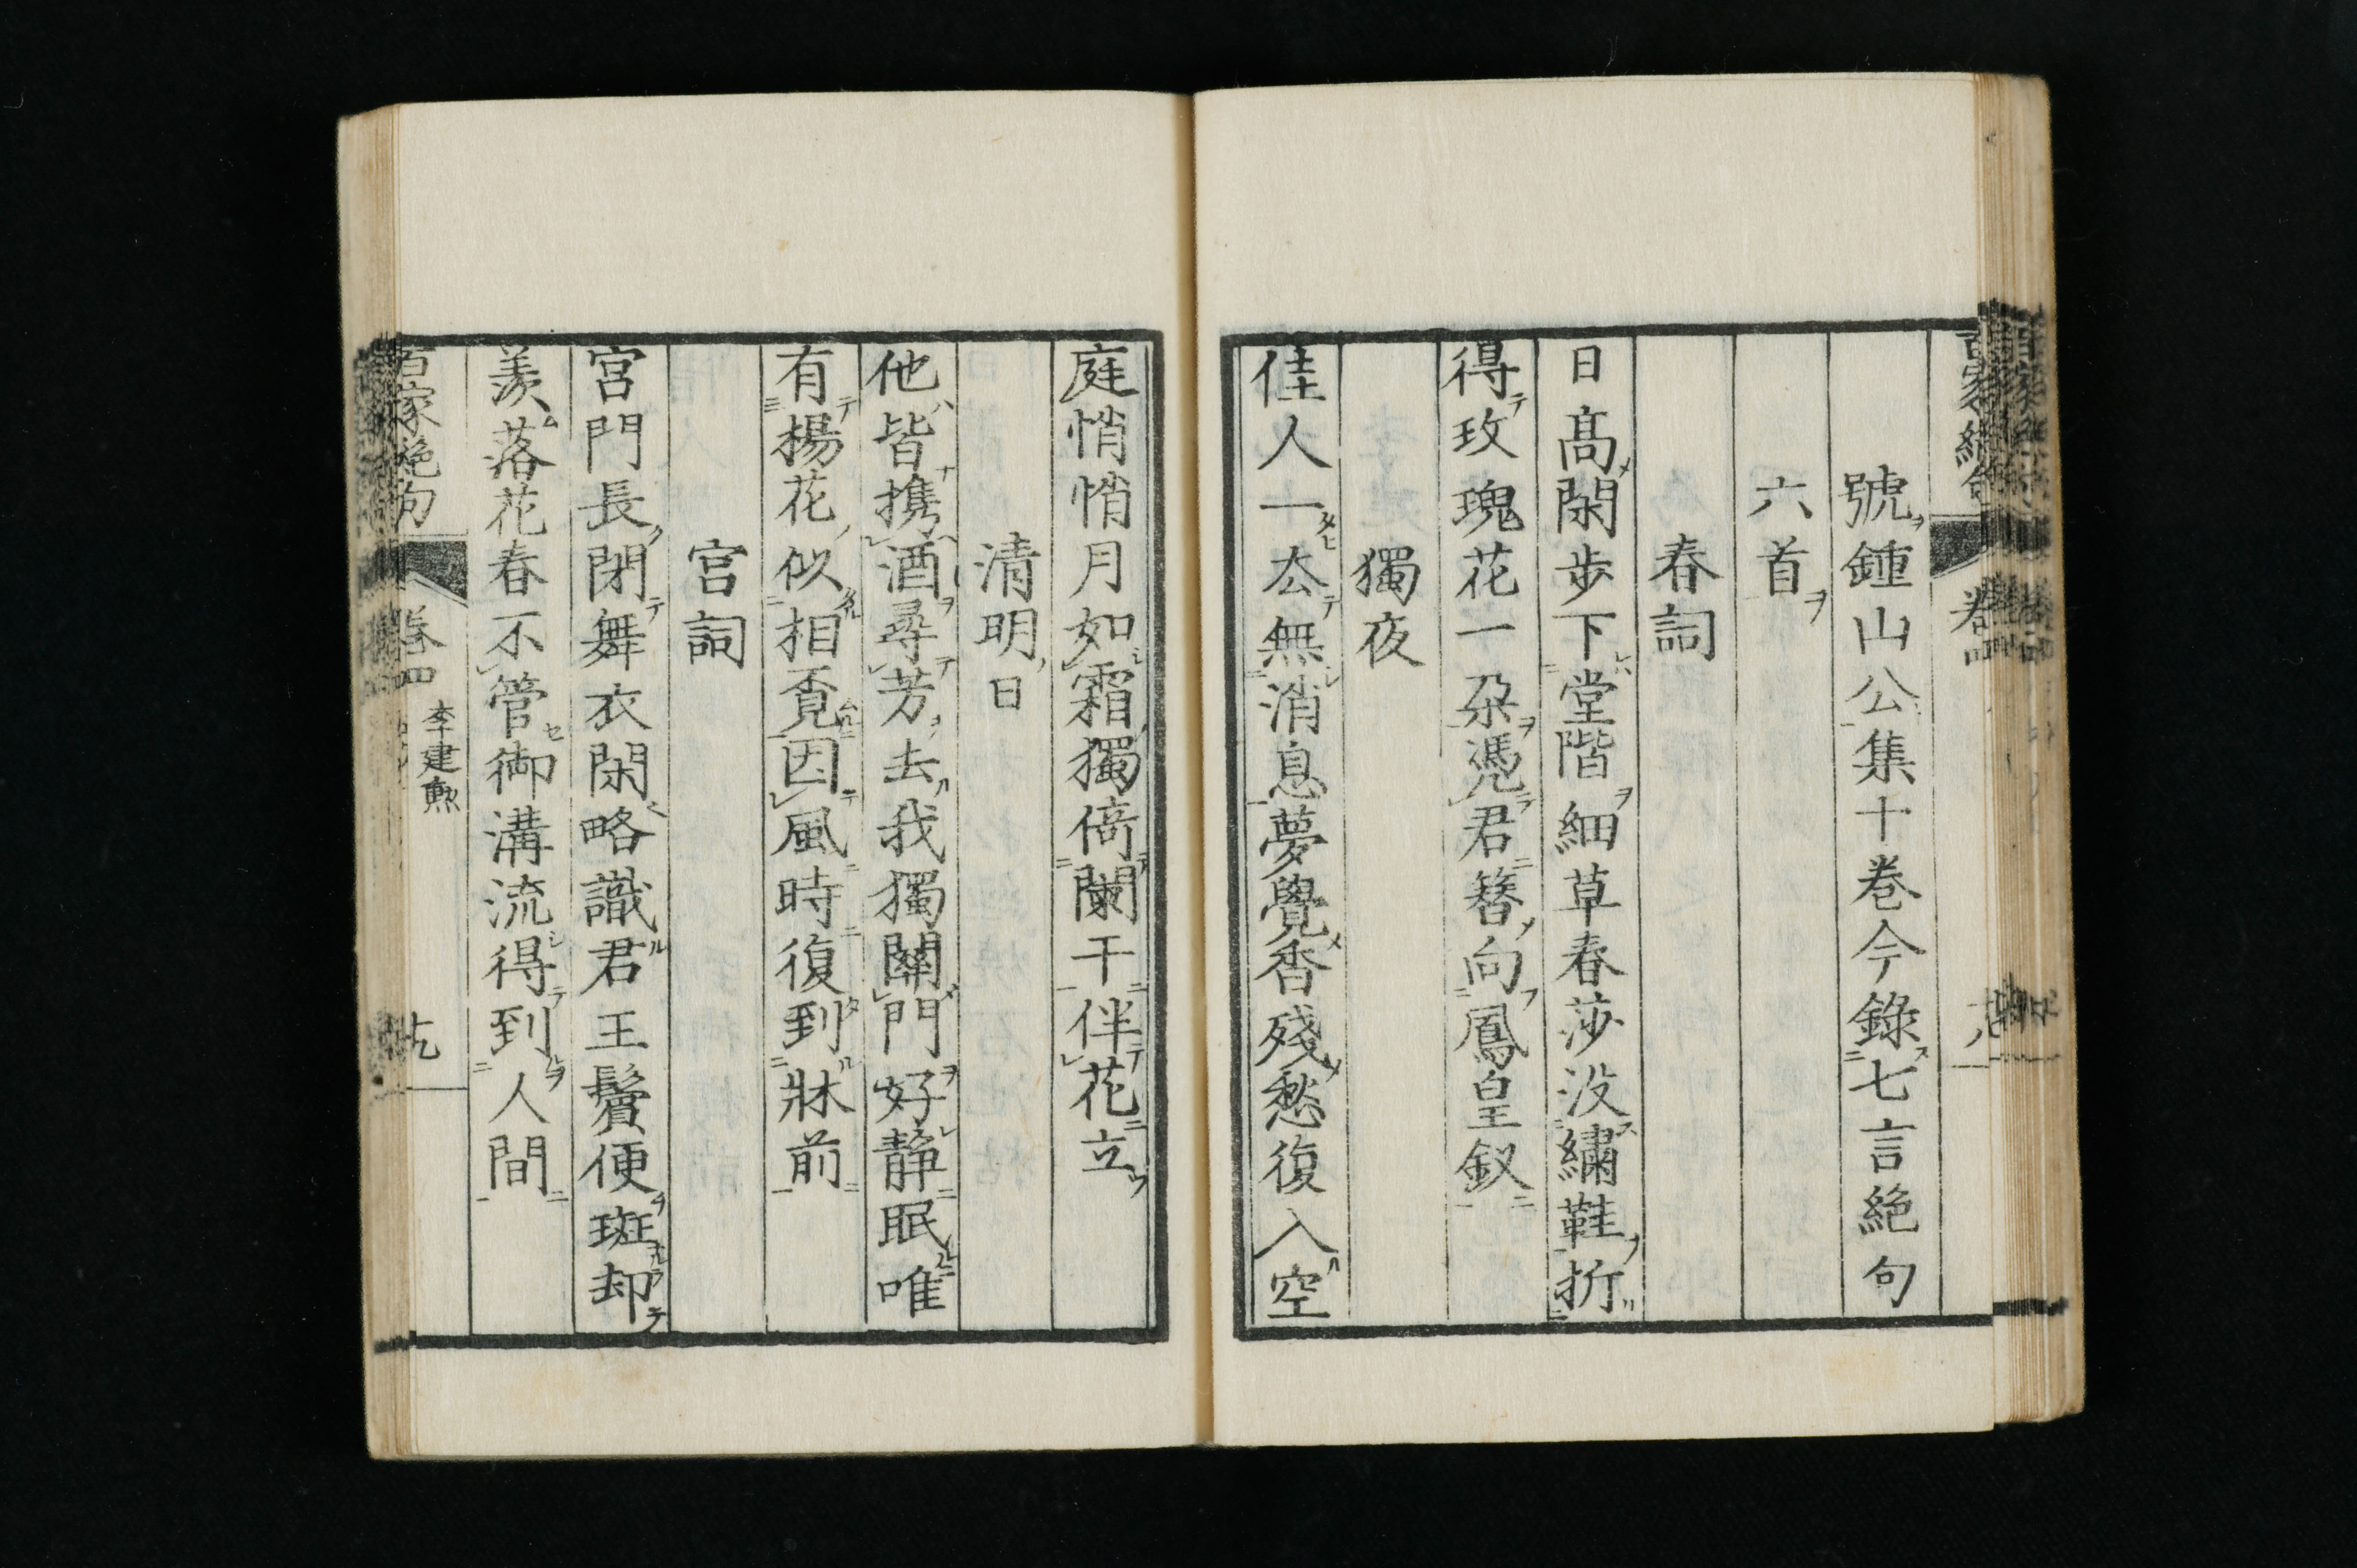 號鍾山公集十巻今錄七言絶句
六首
春詞
日髙閑步下堂階細草春莎没繡鞋折
得玫瑰花一朶憑君簪向鳳皇釵
獨夜
佳人一去無消息夢覺香殘愁復入空
庭悄悄月如霜獨倚闌干伴花立
清明日
他皆攜酒尋芳去我獨關門好靜眠唯
有楊花似相覔因風時復到牀前
宮詞
宮門長閉舞衣閑略識君王鬢便斑却
羨落花春不管御溝流得到人間
百家絶句 卷四 李建勲 十九